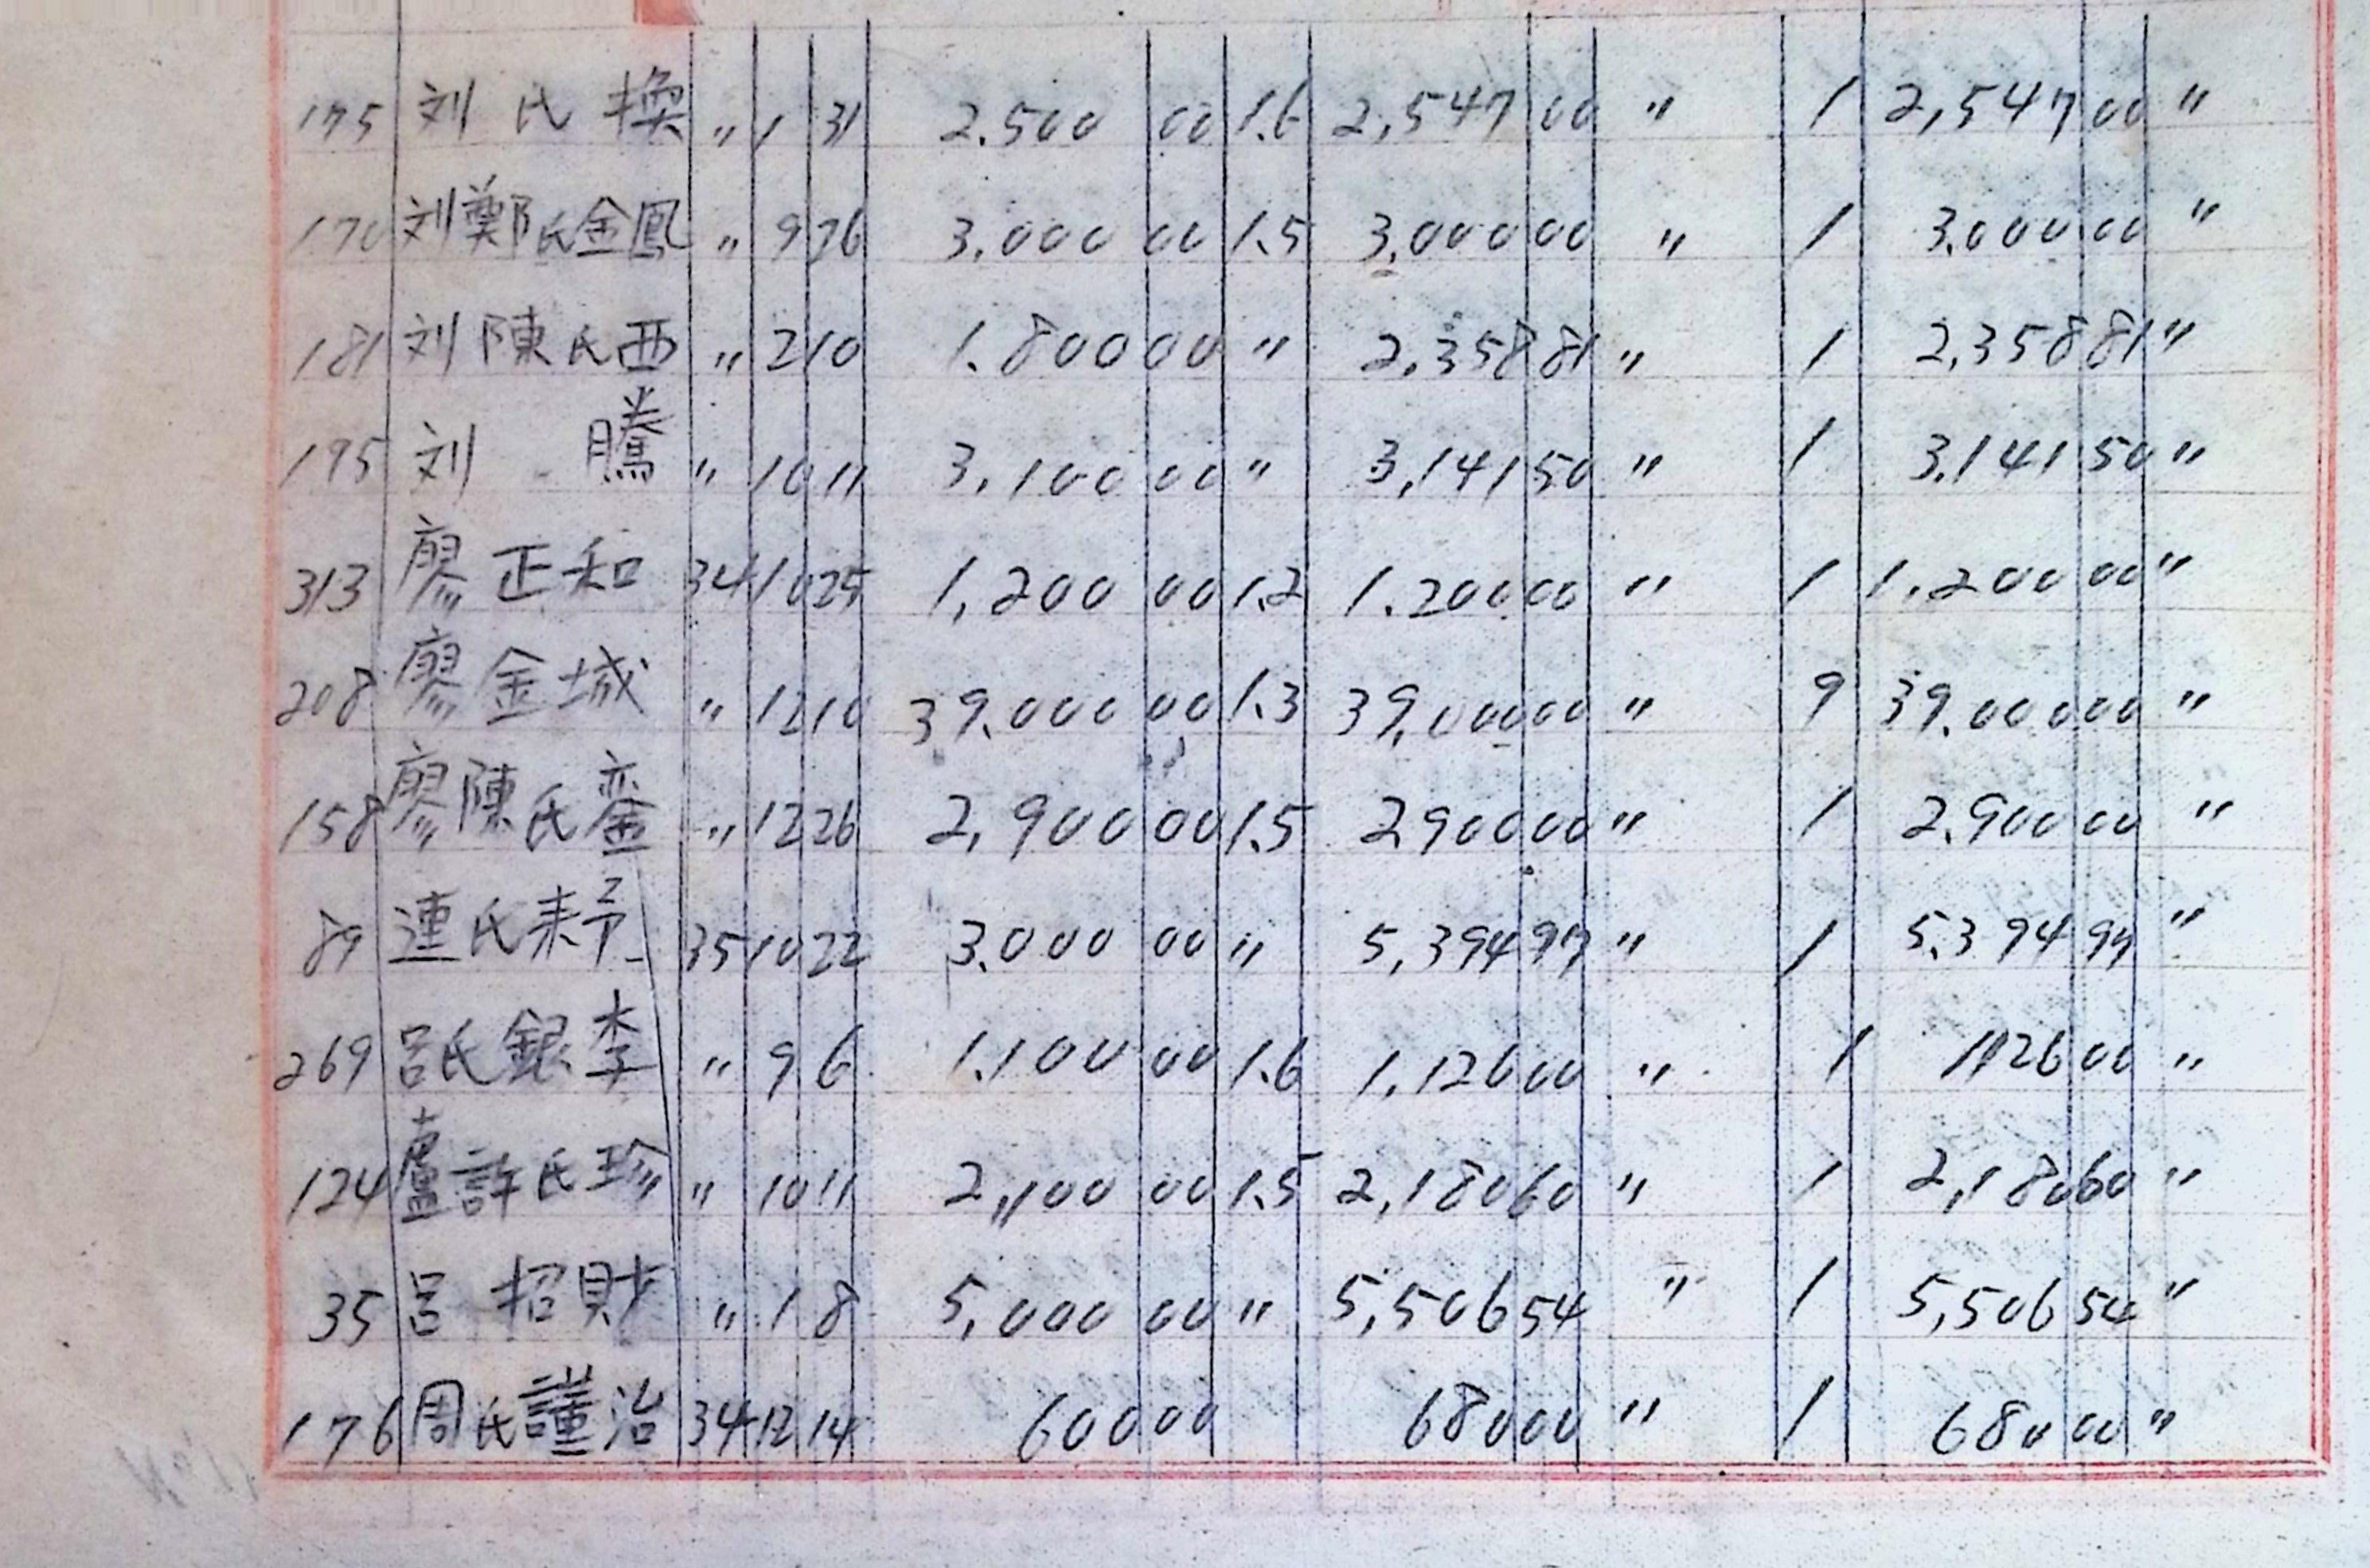 175 刘氏換 〃 1 31 2.500 00 1.6 2,547 00 〃 1 2,547 00 〃
170 刘鄭氏金鳳 〃 9 26 3.000 00 1.5 3.000 00 〃 1 3.000 00 〃
181 刘陳氏西 〃 2 10 1.800 00 〃 2,358 81 〃 1 2,358 81 〃
195 刘騰 〃 10 11 3,100 00 〃 3,141 50 〃 1 3.141 50 〃
313 廖正和 34 10 25 1,200 00 1.2 1.200 00 〃 1 1.200 00 〃
208 廖金城 〃 12 10 39.000 00 1.3 39,000 00 〃 9 39.000 00 〃
158 廖陳氏 〃 12 26 2,900 00 1.5 2900 00 〃 1 2.900 00 〃
89 連氏 35 10 22 3.000 00 〃 5,394 97 〃 1 5.394 97 〃
269 呂氏銀李 〃 9 6 1.100 00 1.6 1,126 00 〃 1 1126 00 〃
124 盧許氏珍 〃 10 11 2,100 00 1.5 2,180 60 〃 1 2,180 60 〃
35 呂招財 〃 1 8 5,000 00 〃 5,506 54 〃 1 5,506 54 〃
176 周氏謹治 34 12 14 600 00 680 00 〃 1 680 00 〃